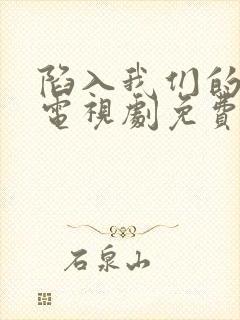 陷入我们的
電視劇免費
石泉山